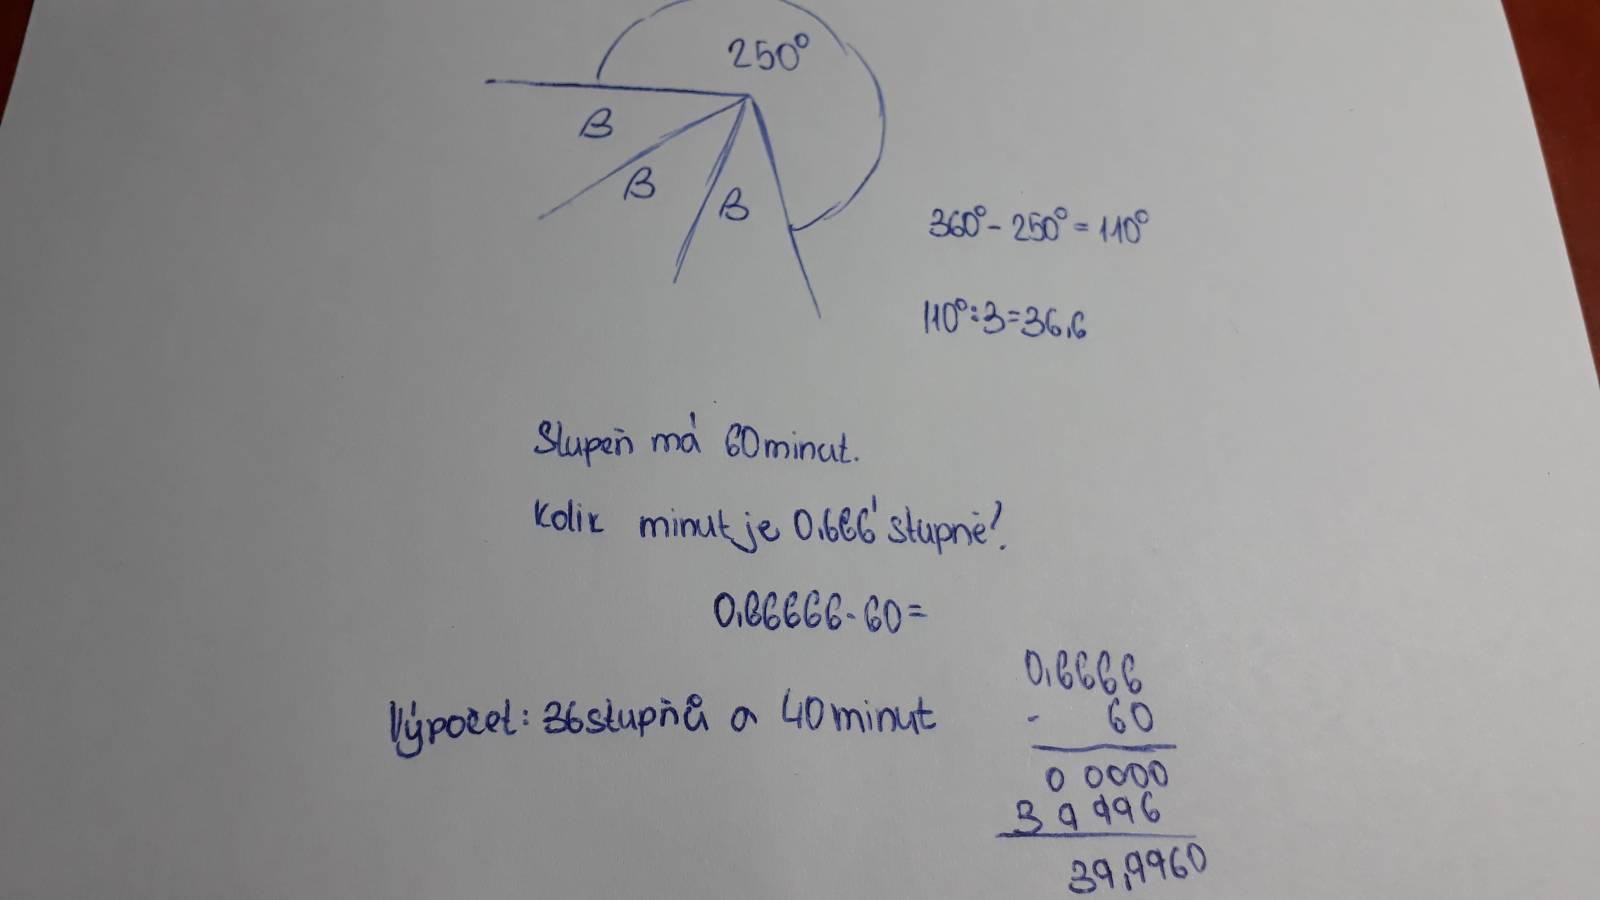 250°
B
B
B
360° - 250° = 110°
110° : 3 = 36,6
Stupeň má 60 minut.
Kolik minut je 0,666' stupně?
0,66666 · 60 =
0,6666
· 60
0 0000
3 9 996
39,9960
Výpočet: 36 stupňů a 40 minut